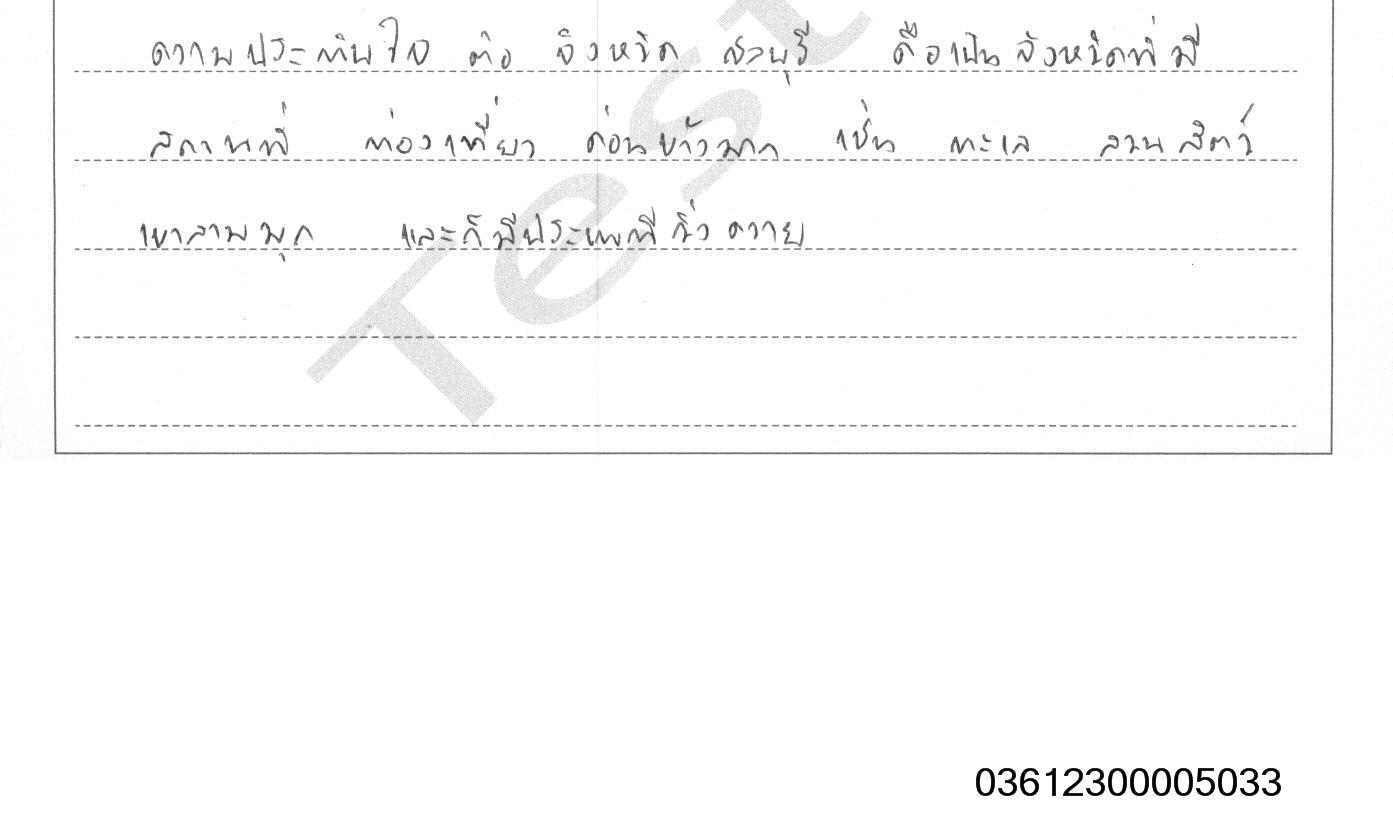 ความประทับใจ ต่อ จังหวัด ชลบุรี คือเป็นจังหวัดที่มี
สถานที่ ท่องเที่ยว ค่อนข้างมาก เช่น ทะเล สวนสัตว์
เขาสามมุก และก็มีประเพณีวิ่งควาย
Test
03612300005033